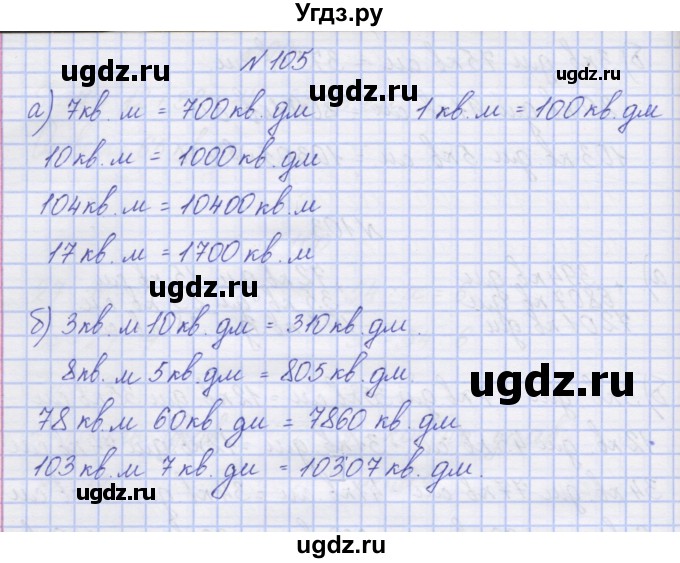 Угдз.ру
№105
ugdz.ru ugdz.ru
а) 7кв. м = 700кв. дм 1 кв. м = 100кв. дм
10кв. м = 1000кв. дм
104кв. м = 10400кв. м
17 кв. м = 1700кв. м
ugdz.ru
б) 3кв. м 10кв. дм = 310кв дм.
8кв. м 5кв. дм = 805кв. дм.
ugdz.ru
78 кв.м 60кв. дм = 7860 кв. дм
103кв. м 7 кв. дм = 10307кв. дм.
ugdz.ru ugdz.ru
ugdz.ru